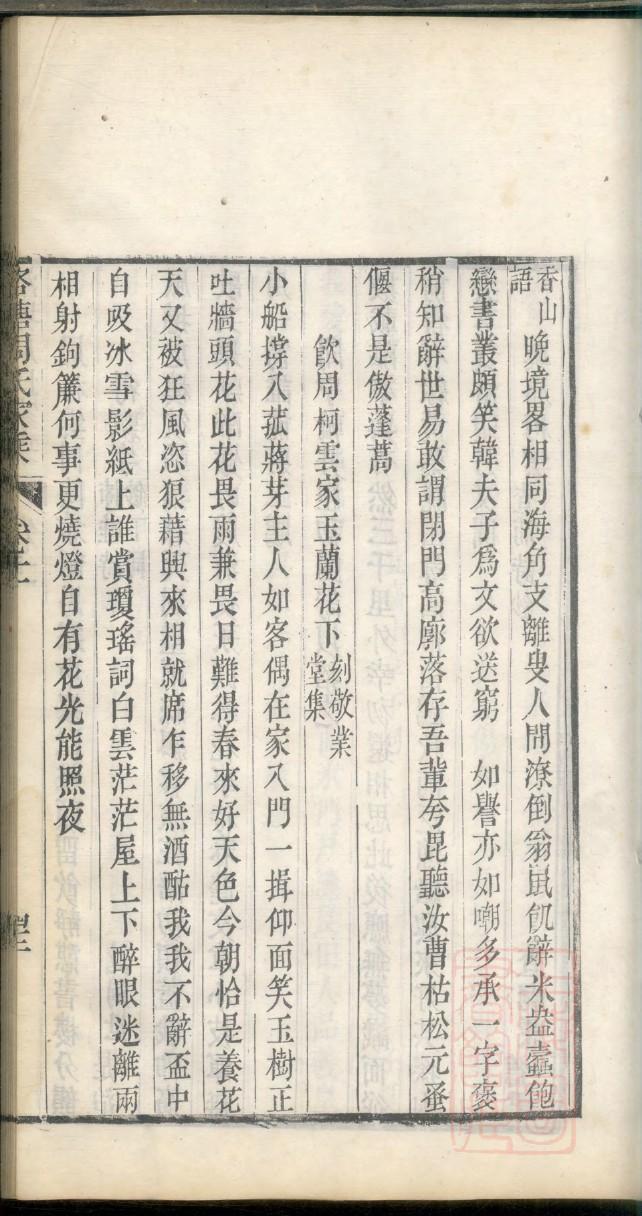 香山語 晚境畧相同海角支離叟人間潦倒翁鼠飢辭米盎蠹飽
戀書叢頗笑韓夫子爲文欲送窮 如譽亦如嘲多承一字褒
稍知辭世易敢謂閉門高廓落存吾輩夸毘聽汝曹枯松元蚤
偃不是傲蓬蒿
飲周柯雲家玉蘭花下 刻敬業堂集
小船撐入菰蔣芽主人如客偶在家入門一揖仰面笑玉樹正
吐牆頭花此花畏雨兼畏日難得春來好天色今朝恰是養花
天又被狂風恣狼藉興來相就席乍移無酒酤我我不辭盃中
自吸冰雪影紙上誰賞瓊瑤詞白雲茫茫屋上下醉眼迷離兩
相射鉤簾何事更燒燈自有花光能照夜
周氏家集